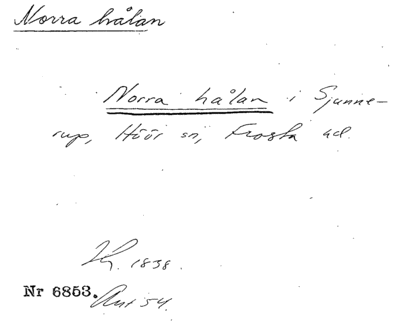 Norra hålan
Norra hålan i Sjunne-
rup, Höör sn, Frosta hd.
1838.
Nr 6853.